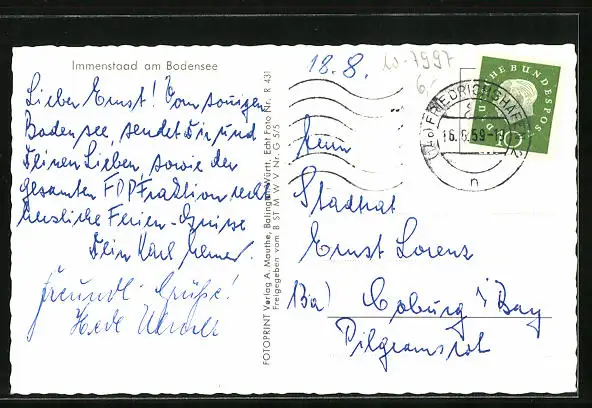 Immenstaad am Bodensee
Lieber Ernst! Vom sonnigen
Bodensee, sendet Dir und
Deinen Lieben, sowie der
gesamten FDP Fraktion recht
herzliche Ferien-Grüsse
Dein Karl
freundl. Grüße!
Hede
FOTOPRINT Verlag A. Mauthe, Balingen/Württ. Echt Foto Nr. R 431
Freigegeben vom B ST M W V Nr. G 5/5
18.8.
w-7997
6,-
DEUTSCHE BUNDESPOST
10
FRIEDRICHSHAFEN
16.8.59-18
n
Herrn
Stadtrat
Ernst Lorenz
13a) Coburg i/Bay
Pilgramsroth